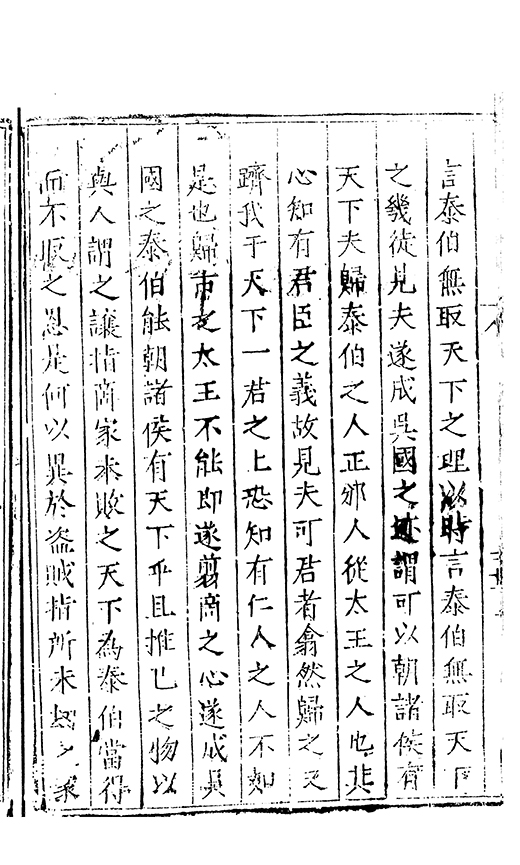 言泰伯無取天下之理以時言泰伯無取天下
之幾徒見夫遂成吳國之迹謂可以朝諸侯有
天下夫歸泰伯之人正邠人從太王之人也其
心知有君臣之義故見夫可君者翕然歸之又
躋我于天下一君之上恐知有仁人之人不如
是也歸市之太王不能即遂翦商之心遂成吳
國之泰伯能朝諸侯有天下乎且推己之物以
與人謂之讓指商家未敗之天下為泰伯當得
而不取之是何以異於盜賊指所未劫之家